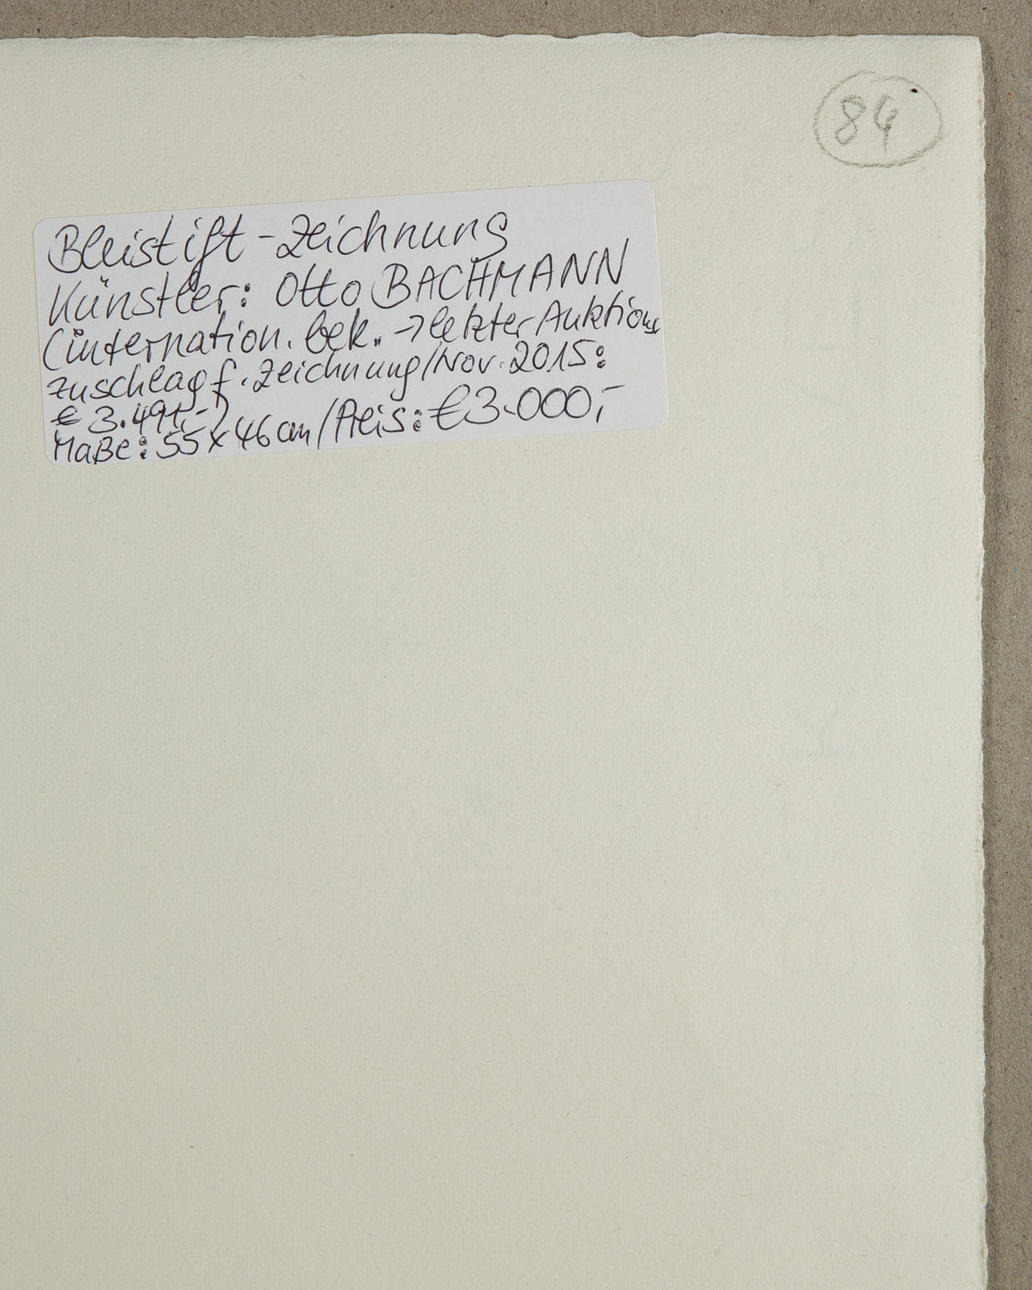 84
Bleistift-Zeichnung
Künstler: Otto BACHMANN
(internation. bek. → letzter Auktions
zuschlag f. Zeichnung/Nov. 2015:
€ 3.491,-)
Maße: 55x46cm/Preis: €3.000,-